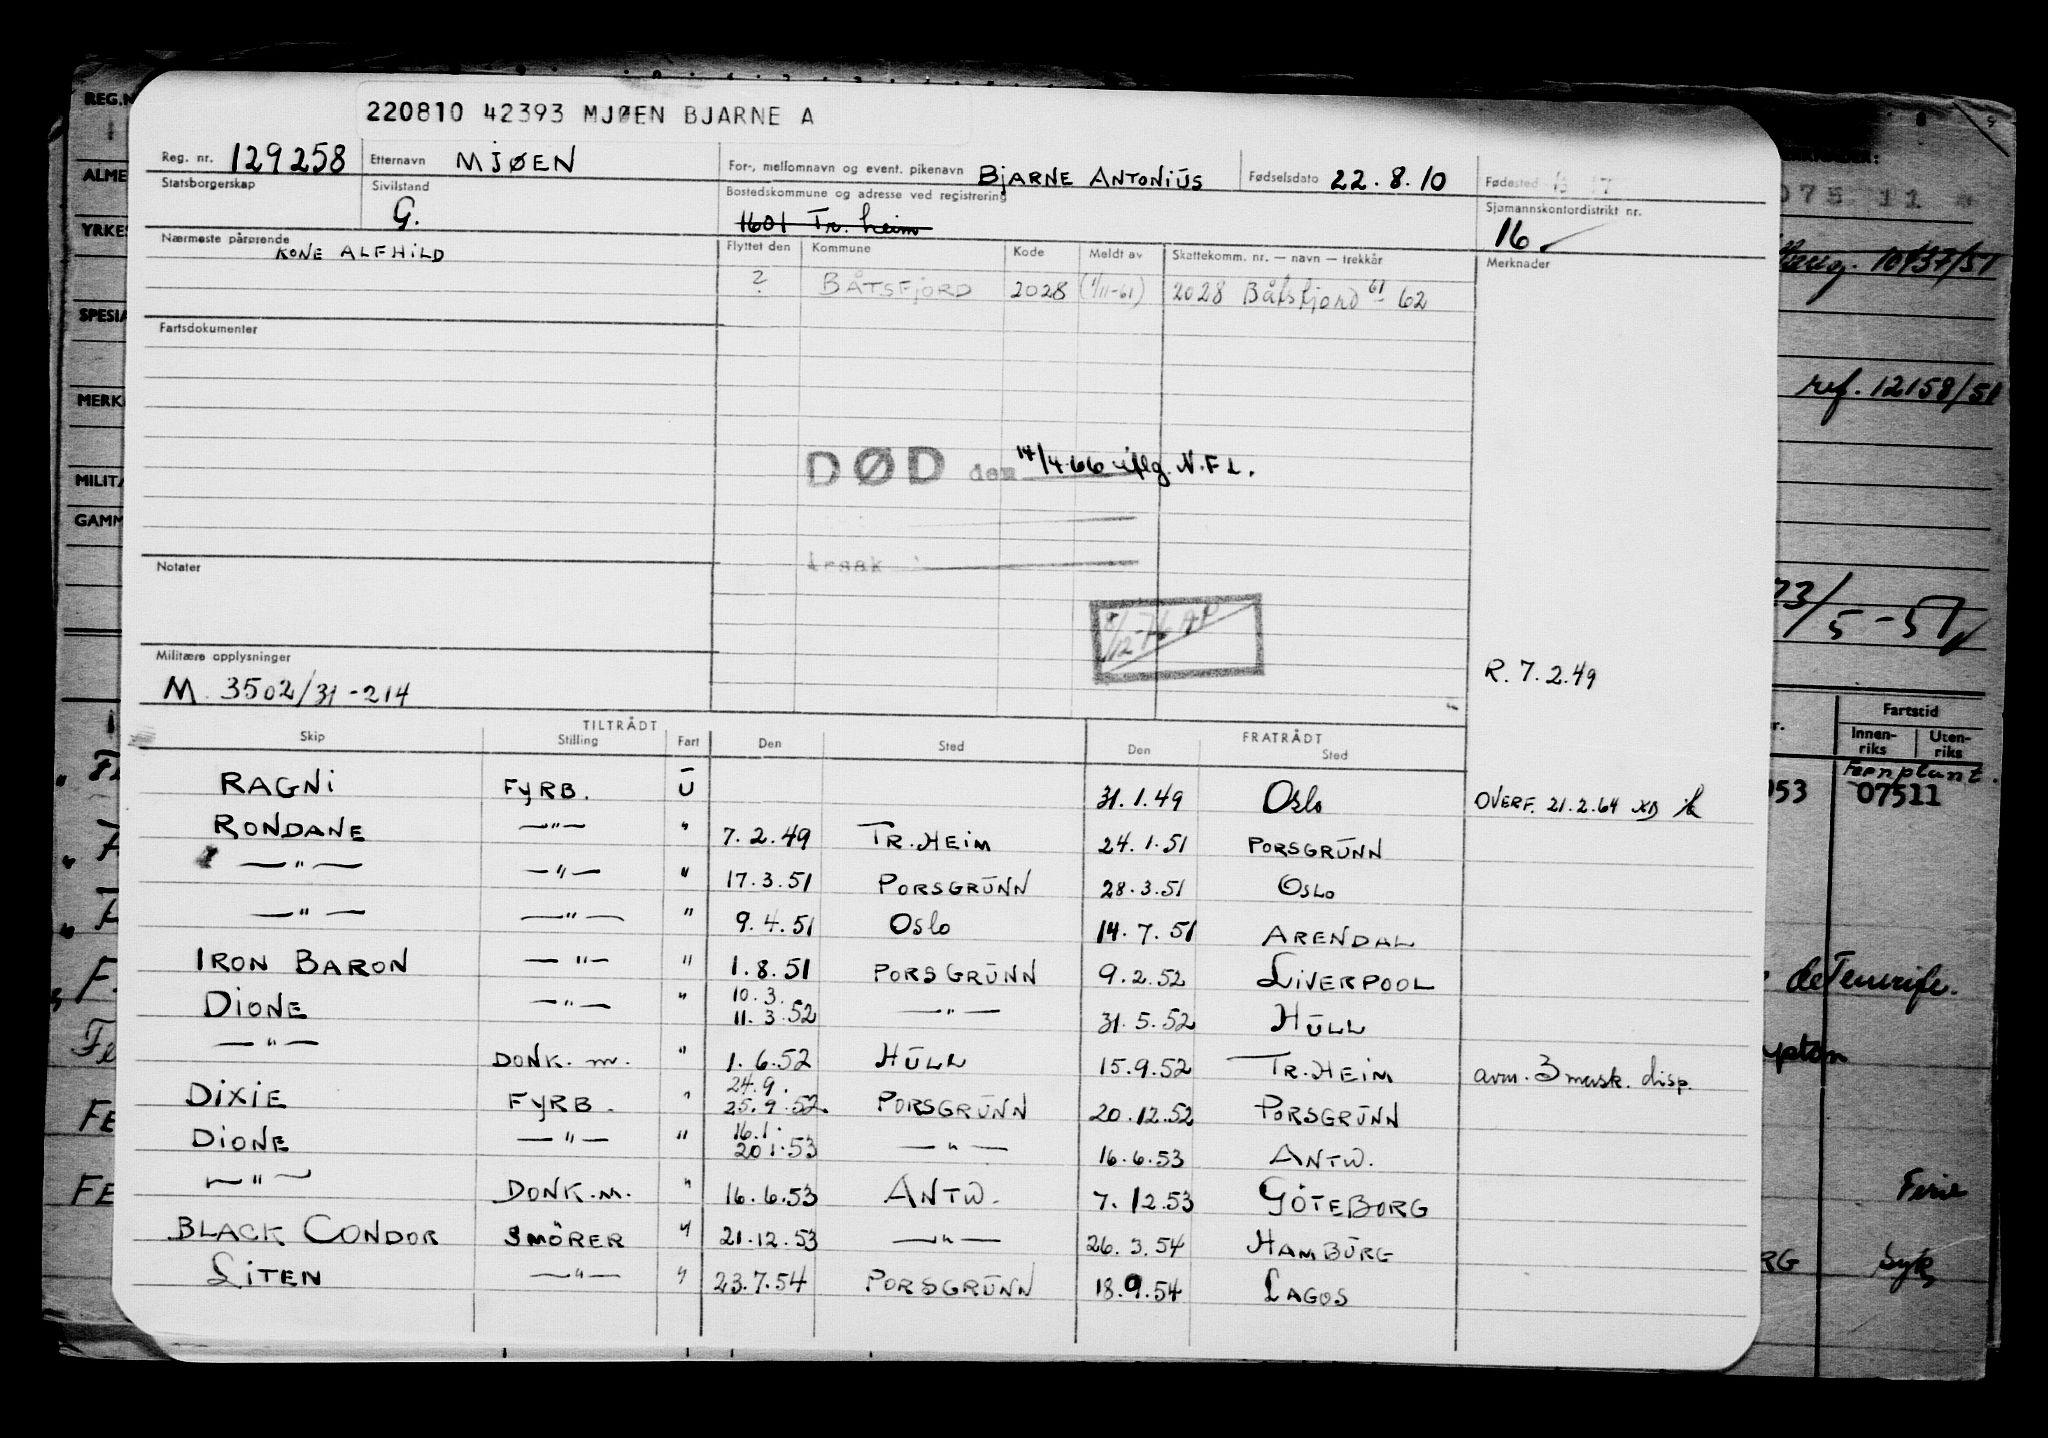 220810 42393 MJØEN BJARNE A
Reg. nr. 129258 Etternavn MJØEN For-, mellomnavn og event. pikenavn BJARNE ANTONIUS Fødselsdato 22.8.10 Fødested
Statsborgerskap Sivilstand G. Bostedskommune og adresse ved registrering 1601 Tr.heim Sjømannskontordistrikt nr. 16
Nærmeste pårørende KONE ALFHILD Flyttet den Kommune Kode Meldt av Skattekomm. nr. — navn — trekkår Merknader
? BÅTSFJORD 2028 (1/11-61) 2028 Båtsfjord 61-62
Fartsdokumenter
DØD den 14/4-66 iflg. N.F.L.
årsak
Notater
Militære opplysninger
M. 3502/31-214
R. 7.2.49
TILTRÅDT FRATRÅDT
Skip Stilling Fart Den Sted Den Sted
RAGNI FYRB. U 31.1.49 Oslo OVERF. 21.2.64
RONDANE —"— " 7.2.49 TR.HEIM 24.1.51 PORSGRUNN
—"— —"— " 17.3.51 PORSGRUNN 28.3.51 OSLO
—"— —"— " 9.4.51 Oslo 14.7.51 ARENDAL
IRON BARON —"— " 1.8.51 PORSGRUNN 9.2.52 LIVERPOOL
DIONE —"— " 10.3. 11.3.52 —"— 31.5.52 HULL
—"— DONK.m. " 1.6.52 HULL 15.9.52 TR.HEIM avm. 3 mask. disp.
DIXIE FYRB. " 24.9. 25.9.52. PORSGRUNN 20.12.52 PORSGRUNN
DIONE —"— " 16.1. 20.1.53 —"— 16.6.53 ANTW.
—"— DONK.M. " 16.6.53 ANTW. 7.12.53 GÖTEBORG
BLACK CONDOR SMÖRER " 21.12.53 —"— 26.3.54 HAMBURG
LITEN —"— " 23.7.54 PORSGRUNN 18.9.54 LAGOS
REG.N
ALME
YRKES
SPESIA
MERK
MILITÆ
GAMM
075 11
10137/51
ref. 12158/51
Fartstid
Innen-riks Uten-riks
Fernplant.
053 07511
de Tenerife.
Ferie
RG Syk